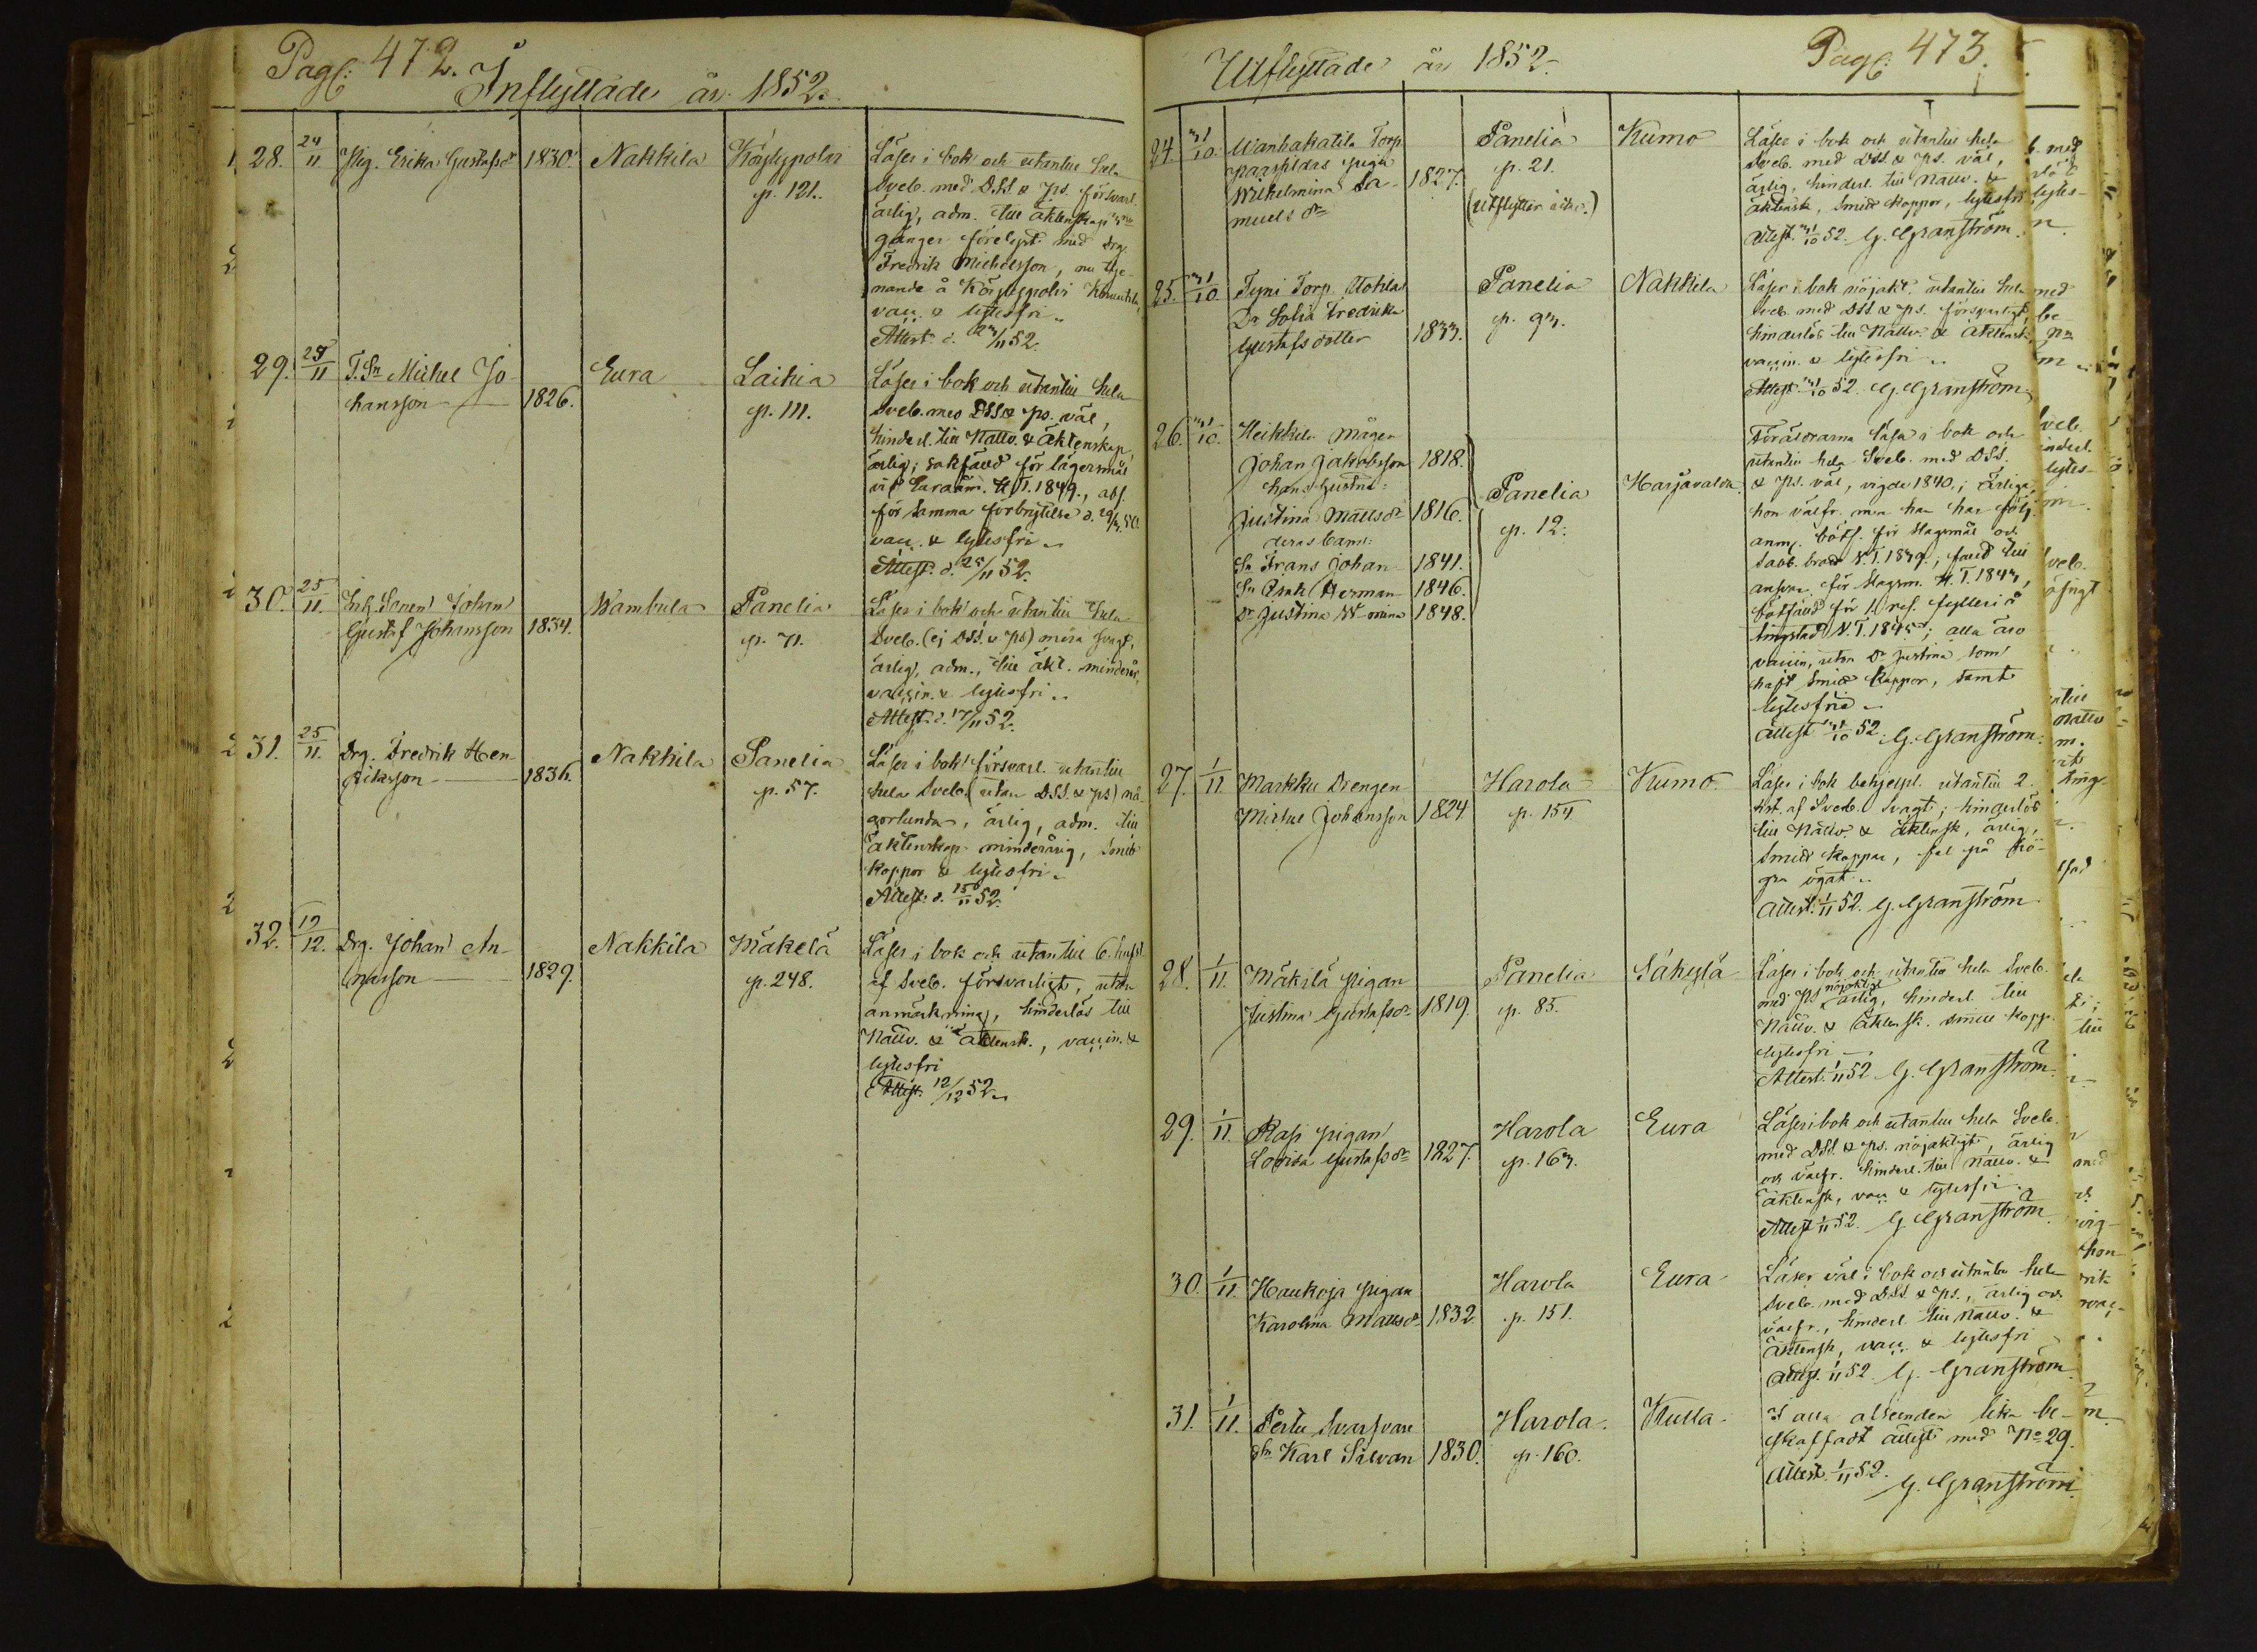 Pag: 472.
Inflyttade år 1852.
28. 24/11 Pig. Erika Gustafsdr 1830. Nakkila Köylypolvi p. 121.
Läser i bok och utantill hela
Sveb. med DSS. & ps. försvarl.
ärlig, adm. till äktenskap
gånger förelyst med drg.
Fredrik Michelsson, nu tje-
nande å Köylypolvi
vacc. & lytesfri
Attest. d. 23/11 52.
29. 25/11 T. Sn Michel Jo-
hansson 1826. Eura Laihia p. 111.
Läser i bok och utantill hela
Sveb. med DSS & ps. väl,
hinderl. till Nattv. & äktenskap
ärlig; sakfäld för lägersmål
vid H.T. 1849., abs.
för samma förbrytelse d.
vacc. & lytesfri
Attest. d. 25/11 52.
30. 25/11. Johan
Gustaf Johansson 1834. Wambula Panelia p. 71.
Läser i bok och utantill hela
Sveb. (ej DSS. & ps) svagt,
ärlig, adm., till äkt. minderår,
vaccin. & lytesfri
Attest. d. 17/11 52.
31. 25/11. Drg. Fredrik Hen-
riksson 1836. Nakkila Panelia p. 57.
Läser i bok försvarl. utantill
hela Sveb. (utan DSS. & ps) nå-
gorlunda, ärlig, adm. till
äktenskap minderårig, smit
koppor & lytesfri
Attest. d. 15/11 52.
32. 19/12. Drg. Johan An-
 1829. Nakkila Mäkelä p. 248.
Läser i bok och utantill 6. hufst.
af Sveb. försvarligt, utan
anmärkning, hinderlös till
Nattv. & äktensk., vaccin. &
lytesfri
Attest. 12/12 52
Utflyttade år 1852.
Pag: 473.
24. 31/10. Wanhakatila Torp
pigan
Wilhelmina Sa-
muelsdr 1827. Panelia p. 21.
(utflyttar icke.) Kumo
Läser i bok och utantill hela
Sveb. med DSS & ps. väl,
ärlig, hinderl. till Nattv. &
äktensk, smitt koppor, lytesfri
Attest. 31/10 52. G. Granström.
25. 31/10. Tyni Torp.
Dr Sofia Fredrika
Gustafsdotter 1833. Panelia p. 93. Nakkila
Läser i bok nöjakt. utantill hela
Sveb. med DSS & ps. försvarligt,
hinderlös till Nattv. & äktensk
vaccin. & lytesfri
Attest. 31/10 52. G. Granström
26. 31/10. Heikkilä mågen
Johan Jakobsson 1818.
hans hustru:
Justina Mattsdr 1816.
deras barn:
Sn Frans Johan 1841.
Sn Isak Herman 1846.
Dr Justina W-mina 1848.
Panelia p. 12. Harjavalda
Föräldrarna läsa i bok och
utantill hela Sveb. med DSS.
& ps. väl, vigde 1840.; ärliga,
hon välfr. men han har följ.
anm. böt. för slagsmål och
sabb. brott V.T. 1839.; fäld till
ansvar för slagsm. H.T. 1843,
botfäld för fylleri å
tingstad V.T. 1845; alla äro
vaccin, utom Dr Justina som
haft smitt koppor, samt
lytesfria
Attest 31/10 52. G. Granström.
27. 1/11. Markku Drengen
Michel Johansson 1824 Harola p. 154 Kumo.
Läser i bok behjelpl. utantill 2.
hst. af Sveb. svagt; hinderlös
till Nattv. & äktensk, ärlig,
smitt koppor, fel på hö-
gra ögat
Attest. 1/11 52. G. Granström
28. 1/11. Mäkilä pigan
Justina Gustafsdr 1819. Panelia p. 85. Säkylä
Läser i bok och utantill hela Sveb.
med ps nöjaktigt ärlig, hinderl. till
Nattv. & äktensk. smitt kopp.
lytesfri
Attest. 1/11 52 G. Granström.
29. 1/11. Rasi pigan
Lovisa Gustafsdr 1827. Harola p. 163. Eura
Läser i bok och utantill hela Sveb.
med DSS. & ps. nöjaktigt, ärlig
och välfr. hinderl. till Nattv. &
äktensk, vacc & lytesfri
Attest 1/11 52. G. Granström
30. 1/11. Haukoja pigan
Karolina Mattsdr 1832 Harola p. 151. Eura
Läser väl i bok och utantill hela
Sveb. med DSS. & ps., ärlig och
välfr., hinderl. till Nattv. &
äktensk, vacc. & lytesfri
Attest. 1/11 52 G. Granström
31. 1/11. Svarfvare
Karl Silvan 1830. Harola p. 160. Kulla
I alla afseenden lika be-
skaffadt attest med No 29.
Attest. 1/11 52.
G. Granström.